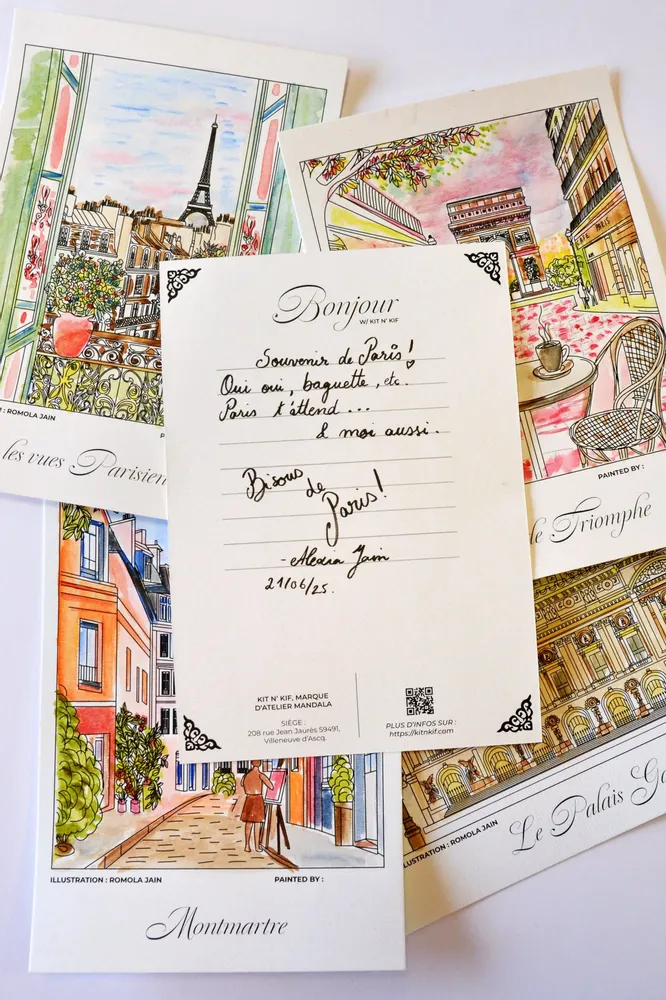 PARIS
: ROMOLA JAIN
les vues Parisien
PAINTED BY :
de Triomphe
Bonjour
W/ KIT N' KIF
Souvenir de Paris !
Oui oui, baguette, etc.
Paris t'attend ...
& moi aussi.
Bisous
de
Paris !
- Alexia Jain
21/06/25.
KIT N' KIF, MARQUE
D'ATELIER MANDALA
SIÈGE :
208 rue Jean Jaurès 59491,
Villeneuve d'Ascq.
PLUS D'INFOS SUR :
https://kitnkif.com
ILLUSTRATION : ROMOLA JAIN
PAINTED BY :
Montmartre
ILLUSTRATION : ROMOLA JAIN
Le Palais Ga